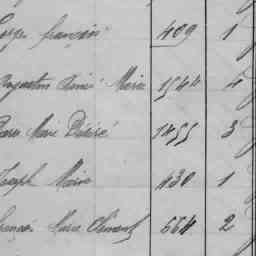 françois 409 1
Augustin Aimé Marie 1544 4
Marie Désiré 1455 3
Joseph Marie 430 1
François Marie Clément 664 2